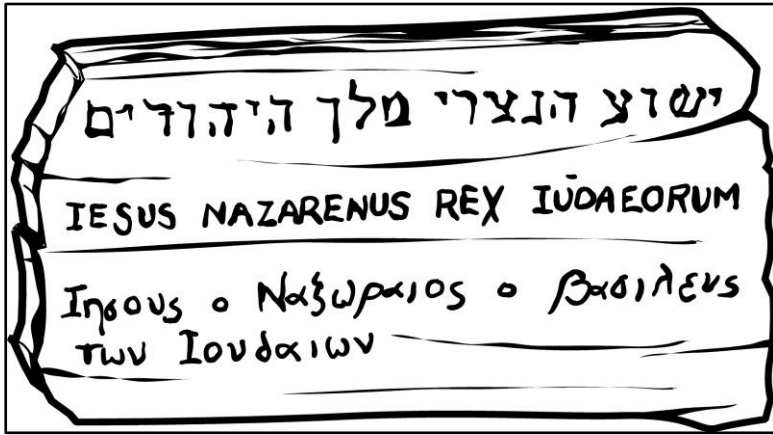 ישוע הנצרי מלך היהודים
IESUS NAZARENUS REX IUDAEORUM
Ιησους ο Ναξωραιος ο βασιλευς
των Ιουδαιων